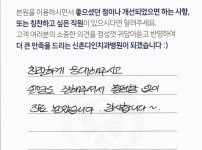 본원을 이용하시면서 좋으셨던 점이나 개선되었으면 하는 사항,
또는 칭찬하고 싶은 직원이 있으시다면 알려주세요.
고객 여러분의 소중한 의견을 정성껏 귀담아듣고 반영하여
더 큰 만족을 드리는 신촌다인치과병원이 되겠습니다 :)
친절하게 응대해주시고
설명도 잘해주셔서 불편함 없이
진료 받았습니다. 감사합니다~